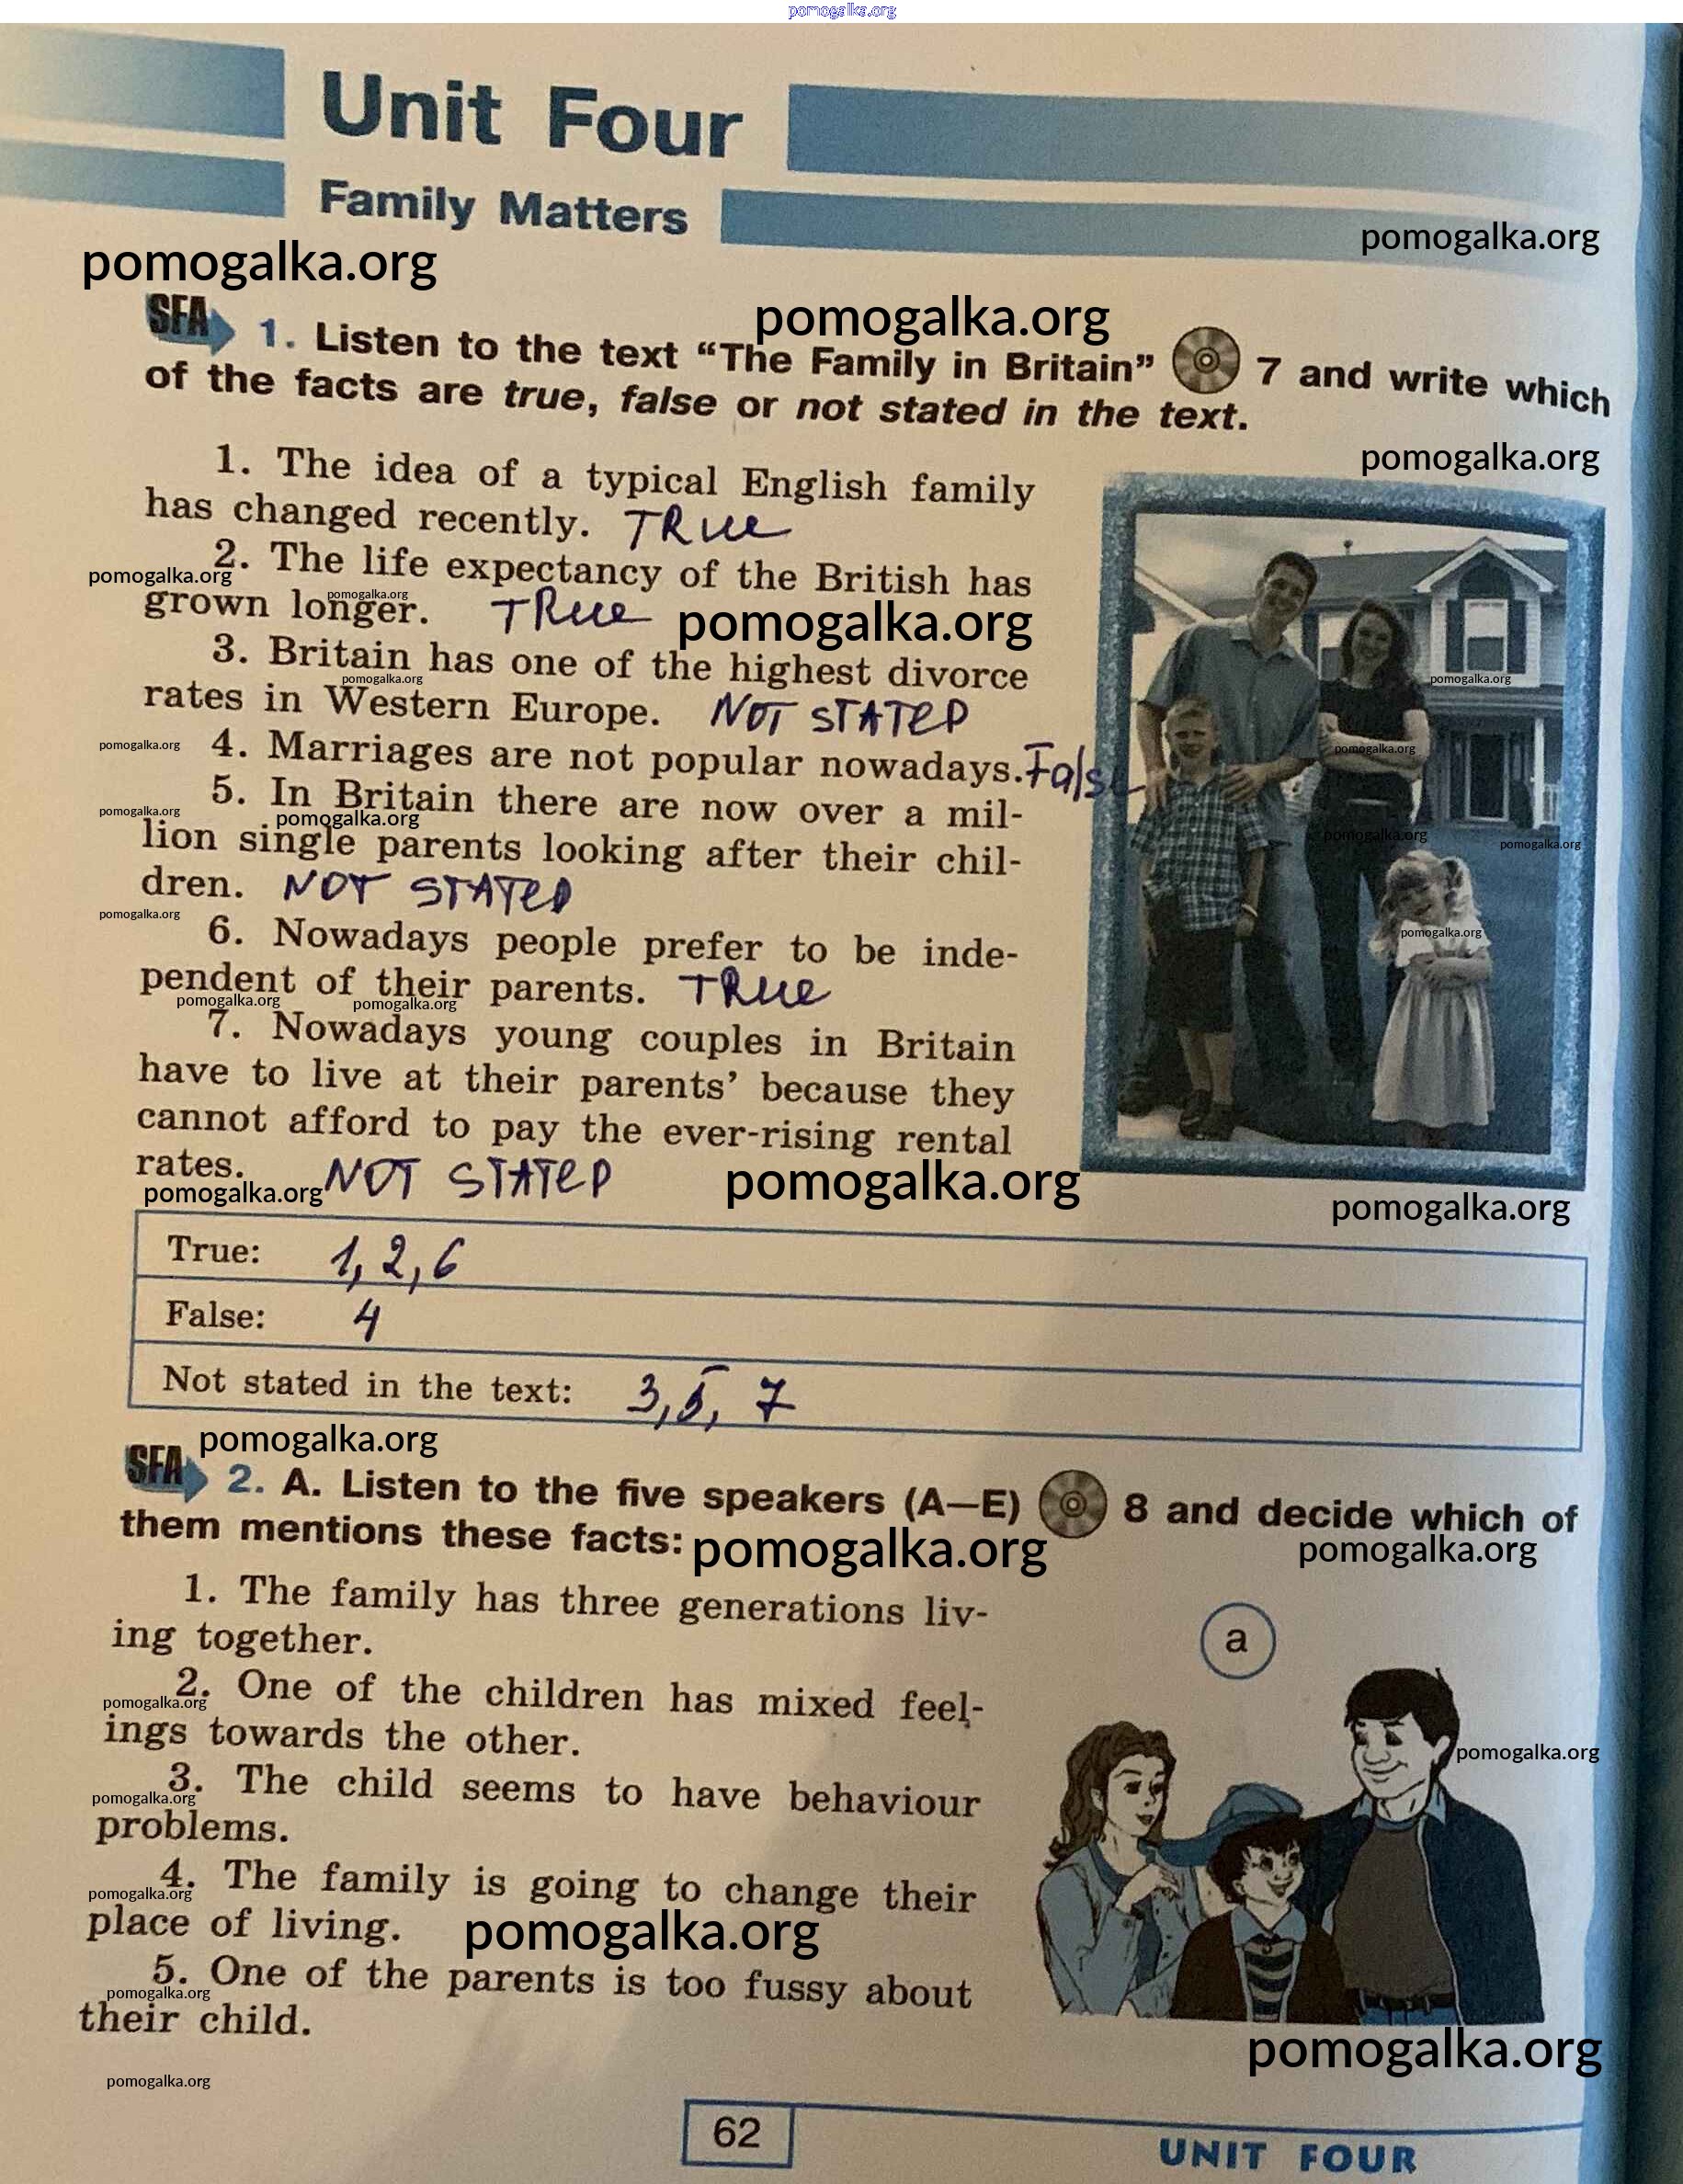 pomogalka.org
Unit Four
Family Matters
pomogalka.org
pomogalka.org
pomogalka.org
SFA 1. Listen to the text “The Family in Britain” 7 and write which
of the facts are true, false or not stated in the text.
pomogalka.org
1. The idea of a typical English family
has changed recently. TRue
2. The life expectancy of the British has
pomogalka.org
pomogalka.org
grown longer. TRue pomogalka.org
3. Britain has one of the highest divorce
pomogalka.org
pomogalka.org
rates in Western Europe. NOT STATeD
pomogalka.org
4. Marriages are not popular nowadays. False
pomogalka.org
5. In Britain there are now over a mil-
pomogalka.org
pomogalka.org
pomogalka.org
pomogalka.org
lion single parents looking after their chil-
dren. NOT STATeD
pomogalka.org
6. Nowadays people prefer to be inde-
pomogalka.org
pendent of their parents. TRue
pomogalka.org
pomogalka.org
7. Nowadays young couples in Britain
have to live at their parents’ because they
cannot afford to pay the ever-rising rental
rates. NOT STATeD
pomogalka.org
pomogalka.org
pomogalka.org
True: 1, 2, 6
False: 4
Not stated in the text: 3, 5, 7
pomogalka.org
SFA 2. A. Listen to the five speakers (A—E) 8 and decide which of
them mentions these facts: pomogalka.org
pomogalka.org
1. The family has three generations liv-
ing together.
a
2. One of the children has mixed feel-
pomogalka.org
ings towards the other.
pomogalka.org
3. The child seems to have behaviour
pomogalka.org
problems.
4. The family is going to change their
pomogalka.org
place of living. pomogalka.org
5. One of the parents is too fussy about
pomogalka.org
their child.
pomogalka.org
pomogalka.org
62
UNIT FOUR